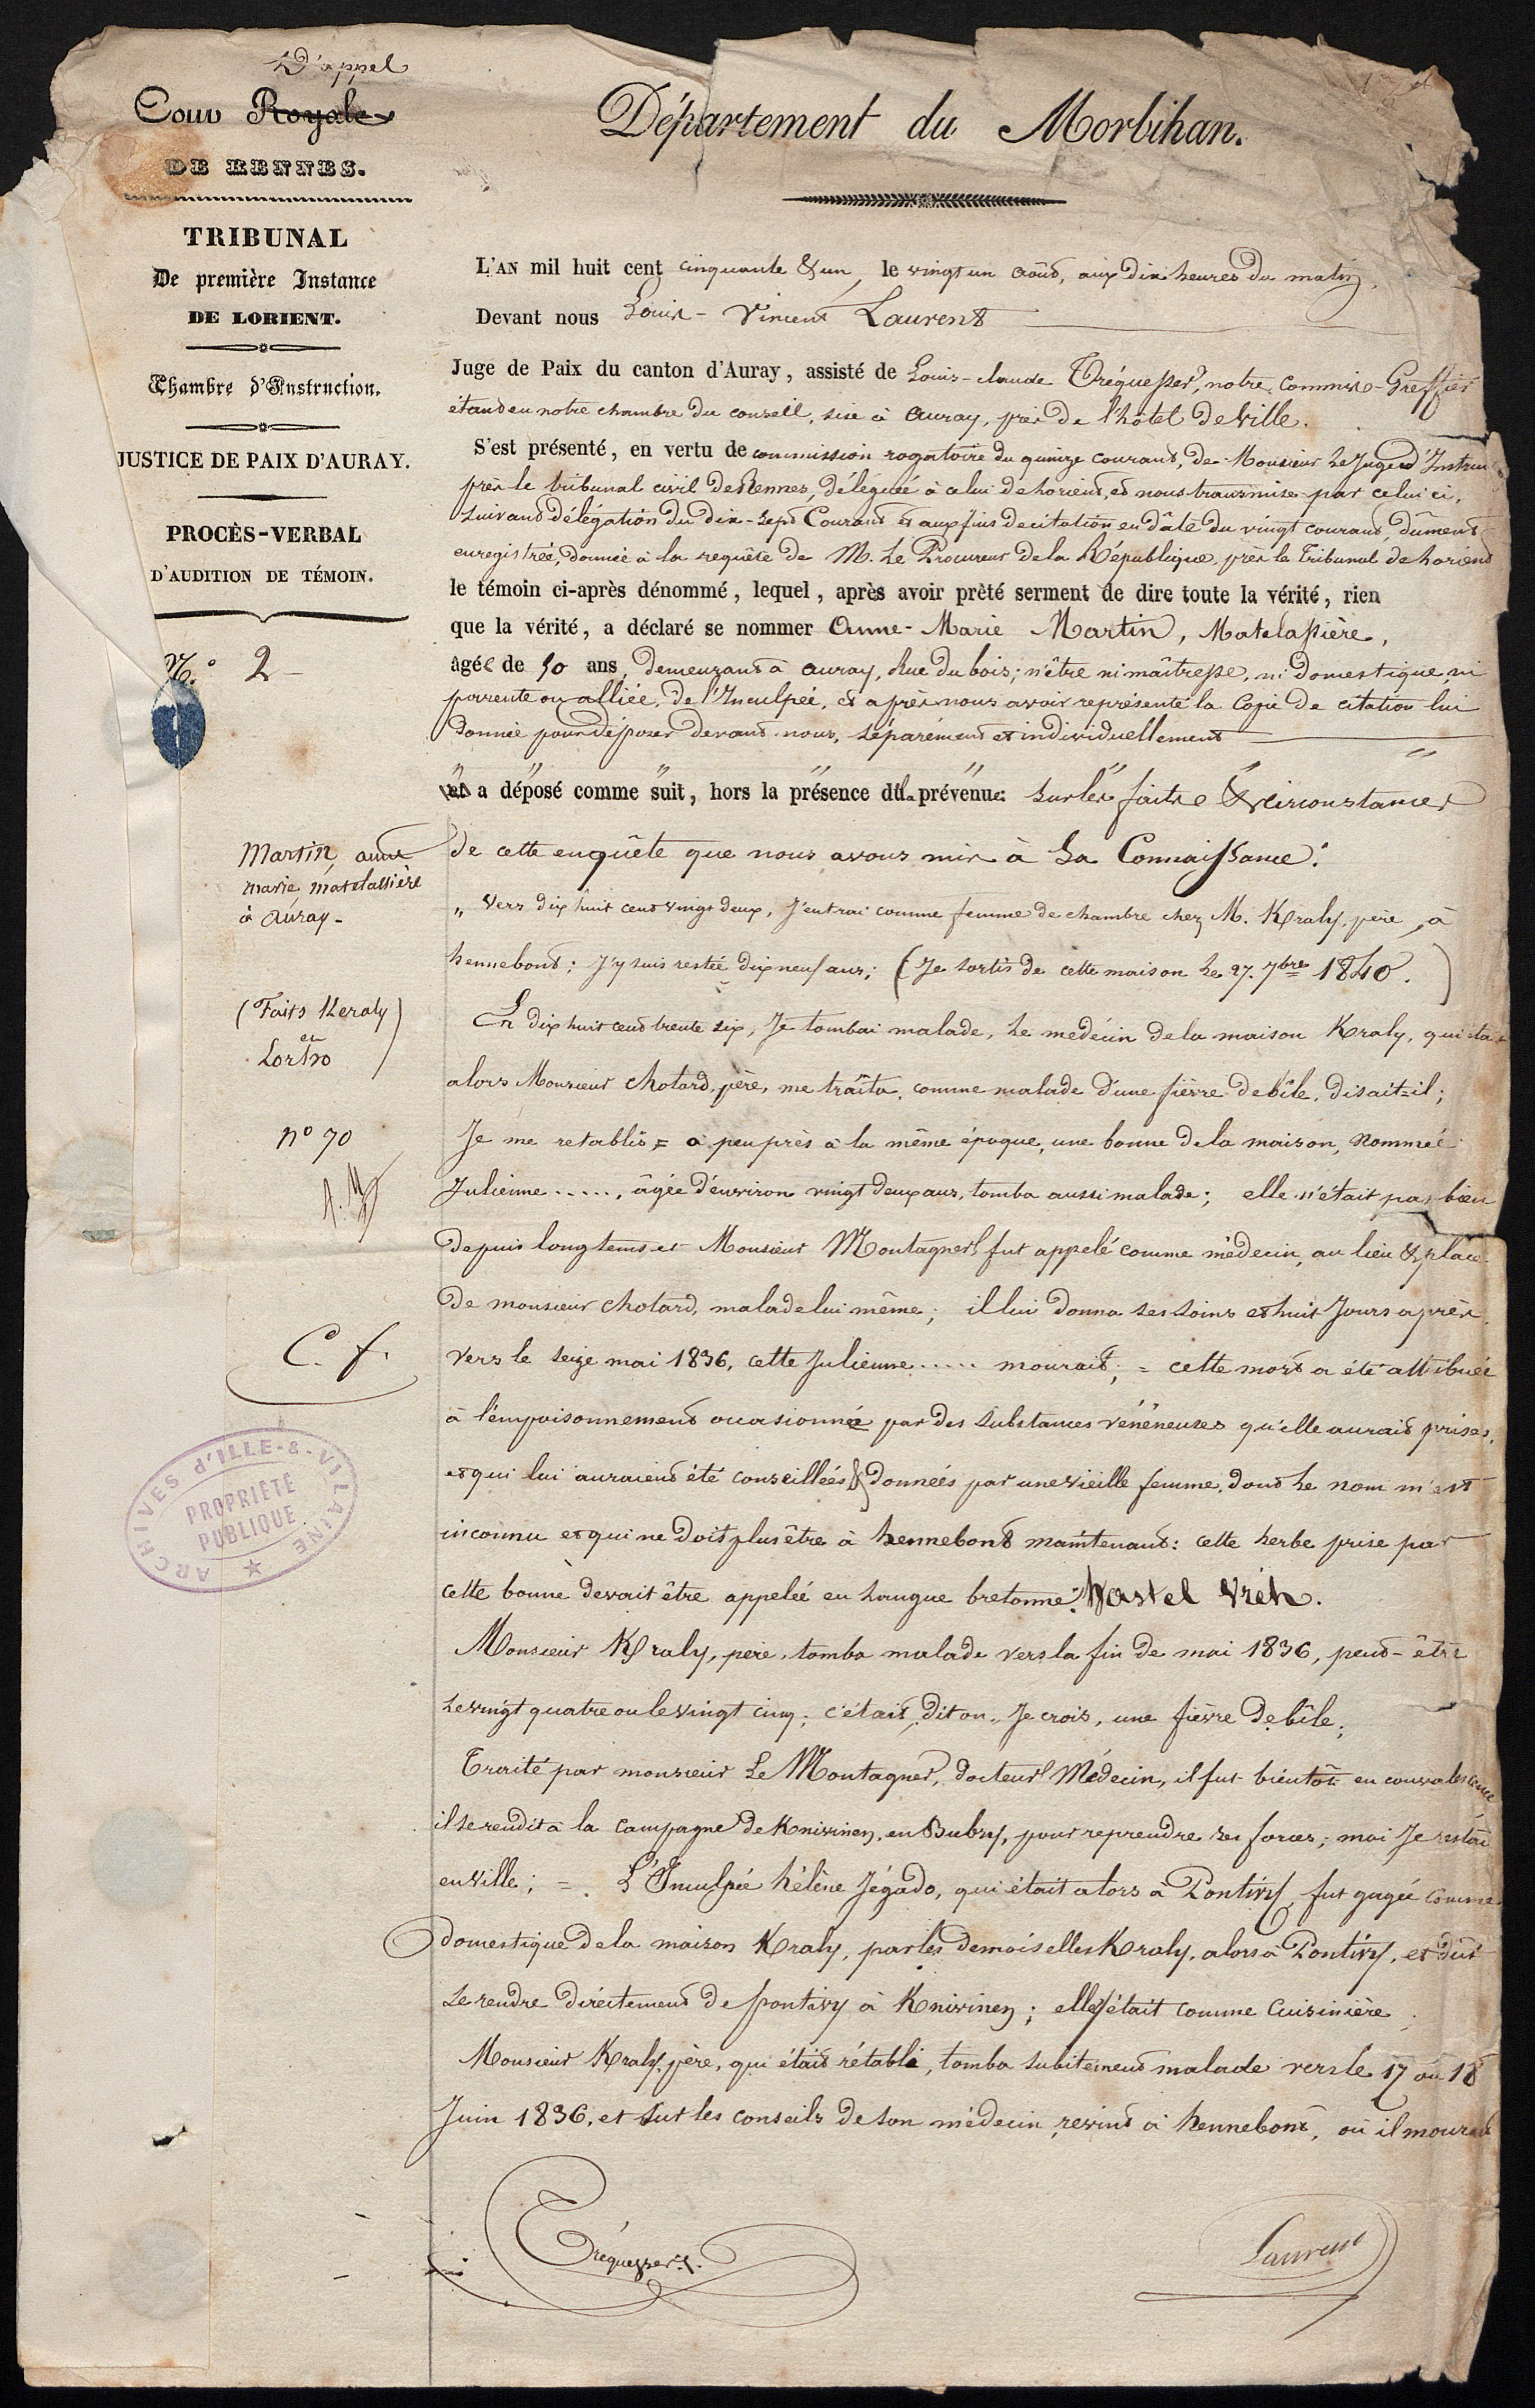 D'appel
Cour Royale
DE RENNES.
TRIBUNAL
De première Instance
DE LORIENT.
Chambre d'Instruction.
JUSTICE DE PAIX D'AURAY.
PROCÈS-VERBAL
D'AUDITION DE TÉMOIN.
N.° 2
Martin, anne
marie, matelassière
à Auray -
(Faits Keraly)
et
Lortho
n° 70
C. f.
ARCHIVES d'ILLE-&-VILAINE
PROPRIÉTÉ
PUBLIQUE
Département du Morbihan.
L'AN mil huit cent cinquante & un, le vingt un août, aux dix heures du matin,
Devant nous Louis - Vincent Laurent
Juge de Paix du canton d'Auray, assisté de Louis-claude Tréguesser, notre Commis-Greffier
étant en notre chambre du conseil, sise à auray, près de l'hôtel de ville.
S'est présenté, en vertu de commission rogatoire du quinze courant, de Monsieur le Juge d'Instruc
près le tribunal civil de Rennes, déléguée à celui de Lorient, et nous transmise par celui ci,
suivant délégation du dix-sept Courant & aux fins de citation en dâte du vingt courant, dûment
enregistrée, donnée à la requête de M. Le Procureur de la République près le Tribunal de Lorient
le témoin ci-après dénommé, lequel, après avoir prêté serment de dire toute la vérité, rien
que la vérité, a déclaré se nommer Anne-Marie Martin, Matelassière,
âgée de 50 ans, demeurant à auray, Rue du bois; n'être ni maîtresse, ni domestique, ni
parente ou alliée, de l'Inculpée, et après nous avoir représenté la Copie de citation lui
donnée pour déposer devant nous, séparément et individuellement
et a déposé comme suit, hors la présence de la prévenue: sur les faits & circonstances
de cette enquête que nous avons mis à Sa Connaissance:
" Vers dix huit cent vingt deux, J'entrai comme femme de chambre chez M. Kraly, père, à
hennebont; J'y suis restée dix neuf ans; (Je sortis de cette maison le 27. 7bre 1840.)
En dix huit cent trente six, Je tombai malade, le médecin de la maison Kraly, qui étai
alors Monsieur chotard, père, me traîta, comme malade d'une fièvre de bîle, disait-il;
Je me retablis = à peu près à la même époque, une bonne de la maison, nommée
Julienne ....., âgée d'environ vingt deux ans, tomba aussi malade; elle n'était pas bien
depuis long tems et Monsieur Montagner fut appelé comme médecin, au lieu & place
de monsieur chotard, malade lui même; il lui donna ses soins et huit Jours après,
vers le seize mai 1836, cette Julienne ..... mourait; = cette mort a été attribuée
à l'empoisonnement occasionnée par des substances vénéneuses qu'elle aurait prises,
et qui lui auraient été conseillées & données par une vieille femme, dont le nom m'est
inconnu et qui ne doit plus être à hennebont maintenant: cette herbe prise par
cette bonne devait être appelée en Langue bretonne: hastel vrèh.
Monsieur Kraly, père, tomba malade vers la fin de mai 1836, peut-être
le vingt quatre ou le vingt cinq; c'était, dit on, Je crois, une fièvre de bîle;
Traité par monsieur Le Montagner, docteur Médecin, il fut bientôt en convalescence
il se rendit à la campagne de Knivinen, en Bubry, pour reprendre ses forces; moi Je restai
en ville; = L'Inculpée hélène Jégado, qui était alors à Pontivy, fut gagée comme
domestique de la maison Kraly, par les demoiselles Kraly, alors à Pontivy, et dut
se rendre directement de pontivy à Knivinen; elle y était comme cuisinière;
Monsieur Kraly, père, qui était rétabli, tomba subitement malade vers le 17 ou 18
Juin 1836, et sur les conseils de son médecin, revint à hennebont, où il mourut
Tréguesser
Laurent